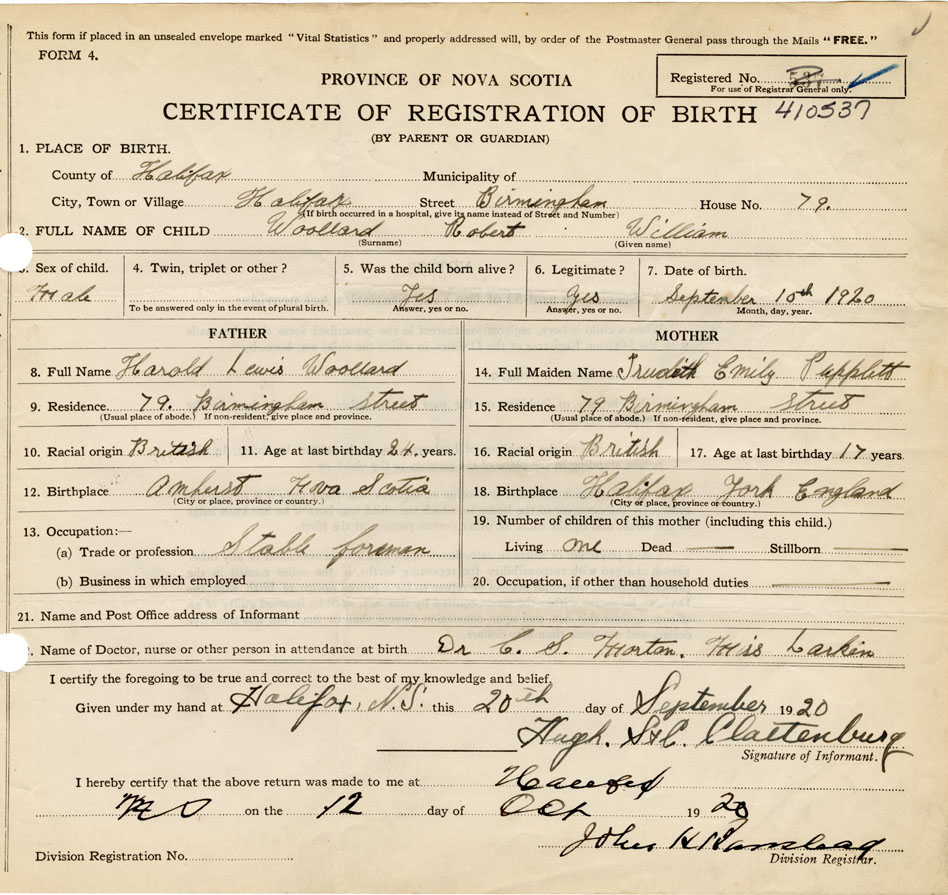 This form if placed in an unsealed envelope marked "Vital Statistics" and properly addressed will, by order of the Postmaster General pass through the Mails "FREE."
FORM 4.
PROVINCE OF NOVA SCOTIA
Registered No.
For use of Registrar General only.
CERTIFICATE OF REGISTRATION OF BIRTH 410537
(BY PARENT OR GUARDIAN)
1. PLACE OF BIRTH.
County of Halifax Municipality of
City, Town or Village Halifax Street Birmingham House No. 79.
(If birth occurred in a hospital, give its name instead of Street and Number)
2. FULL NAME OF CHILD Woollard Robert William
(Surname) (Given name)
3. Sex of child. 4. Twin, triplet or other? 5. Was the child born alive? 6. Legitimate? 7. Date of birth.
Male Yes Yes September 10th 1920
To be answered only in the event of plural birth. Answer, yes or no. Answer, yes or no. Month, day, year.
FATHER MOTHER
8. Full Name Harold Lewis Woollard 14. Full Maiden Name Emily Pupplett
9. Residence. 79. Birmingham Street 15. Residence 79 Birmingham Street
(Usual place of abode.) If non-resident, give place and province. (Usual place of abode.) If non-resident, give place and province.
10. Racial origin British 11. Age at last birthday 24. years. 16. Racial origin British 17. Age at last birthday 17 years.
12. Birthplace Amherst Nova Scotia 18. Birthplace Halifax York England
(City or place, province or country.) (City or place, province or country.)
13. Occupation:— 19. Number of children of this mother (including this child.)
(a) Trade or profession Stable foreman Living one Dead — Stillborn —
(b) Business in which employed 20. Occupation, if other than household duties —
21. Name and Post Office address of Informant
. Name of Doctor, nurse or other person in attendance at birth Dr C. S. Morton. Miss Larkin
I certify the foregoing to be true and correct to the best of my knowledge and belief.
Given under my hand at Halifax, N.S. this 20th day of September 1920
Hugh. Clattenburg
Signature of Informant.
I hereby certify that the above return was made to me at Halifax
N S on the 12 day of Oct 1920
John H
Division Registrar.
Division Registration No.